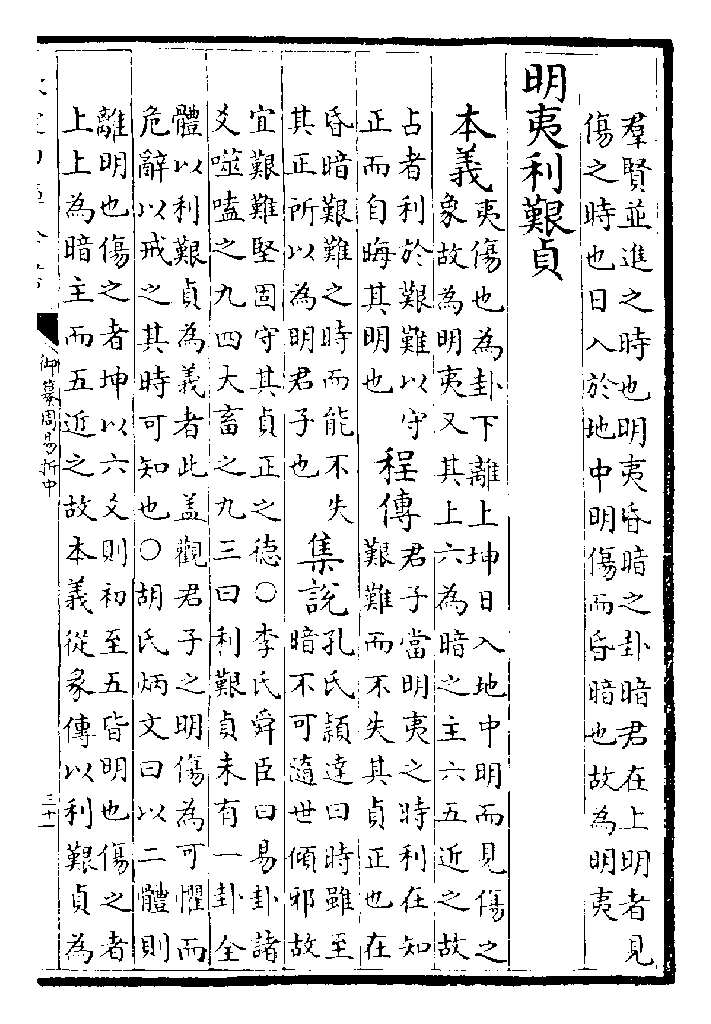 羣賢並進之時也明夷昏暗之卦暗君在上明者見
傷之時也日入於地中明傷而昏暗也故為明夷
明夷利艱貞
本義
夷傷也為卦下離上坤日入地中明而見傷之
象故為明夷又其上六為暗之主六五近之故
占者利於艱難以守
正而自晦其明也
程傳
君子當明夷之時利在知
艱難而不失其貞正也在
昏暗艱難之時而能不失
其正所以為明君子也
集說
孔氏頴達曰時雖至
暗不可隨世傾邪故
宜艱難堅固守其貞正之德○李氏舜臣曰易卦諸
爻噬嗑之九四大畜之九三曰利艱貞未有一卦全
體以利艱貞為義者此盖觀君子之明傷為可懼而
危辭以戒之其時可知也○胡氏炳文曰以二體則
離明也傷之者坤以六爻則初至五皆明也傷之者
上上為暗主而五近之故本義從彖傳以利艱貞為
御纂周易折中
三十一